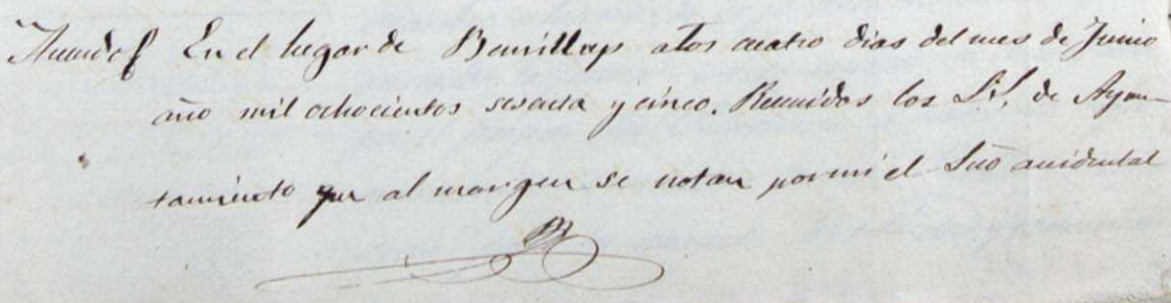 Acuerdo En el lugar de Benillup a los cuatro dias del mes de Junio
año mil ochocientos sesenta y cinco. Reunidos los S.S. de Ayun-
tamiento que al margen se notan por mi el Srio accidental